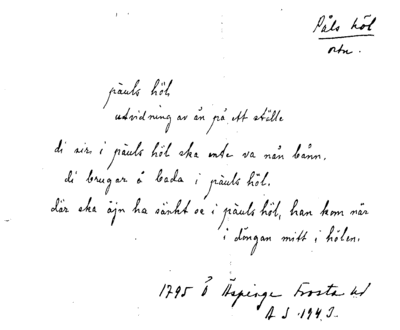 Påls höl
ortn.
påuls höl,
utvidning av ån på ett ställe
di sir i påuls höl ska inte va nån bånn.
di brugar å bada i påuls höl.
där ska äjn ha sänkt se i påuls höl, han kom når
i döngan mitt i hölen.
1795 Ö Äspinge Frosta hd
A S 1943.